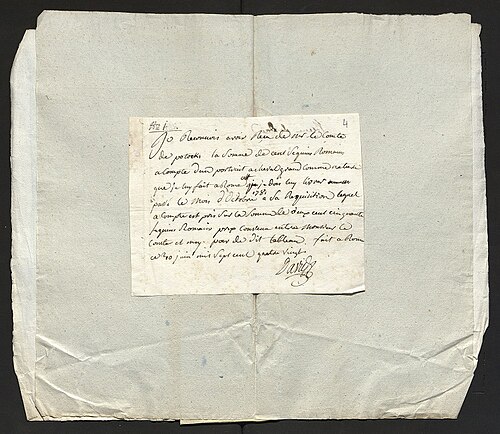 4
Je Reconnois avoir Recu de mr le Comte
de potocki la Somme de cent Sequins Romain
a Compte d'un portrait a cheval grand comme nature
que je luy fait a Rome et que je dois luy livrer
passé le Mois d'Octobre 1781 a Sa Requisition lequel
a Compte est pris Sur la Somme de deux cent cinquante
Sequins Romains prix convenu entre Monsieur le
Comte et moy pour de dit tableau. fait a Rome
ce 30 juin mil Sept cent quatre vingt
David